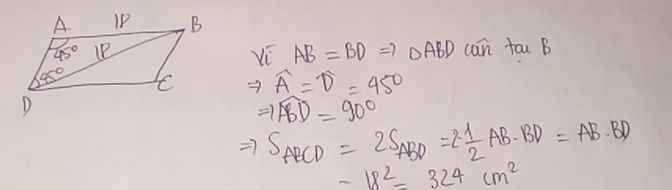 A 18 B
45° 18
45°
D C
Vì AB = BD => △ABD cân tại B
=> Â = D̂ = 45°
=> ABD̂ = 90°
=> S_ABCD = 2S_ABD = 2·1/2 AB·BD = AB·BD
= 18² = 324 cm²